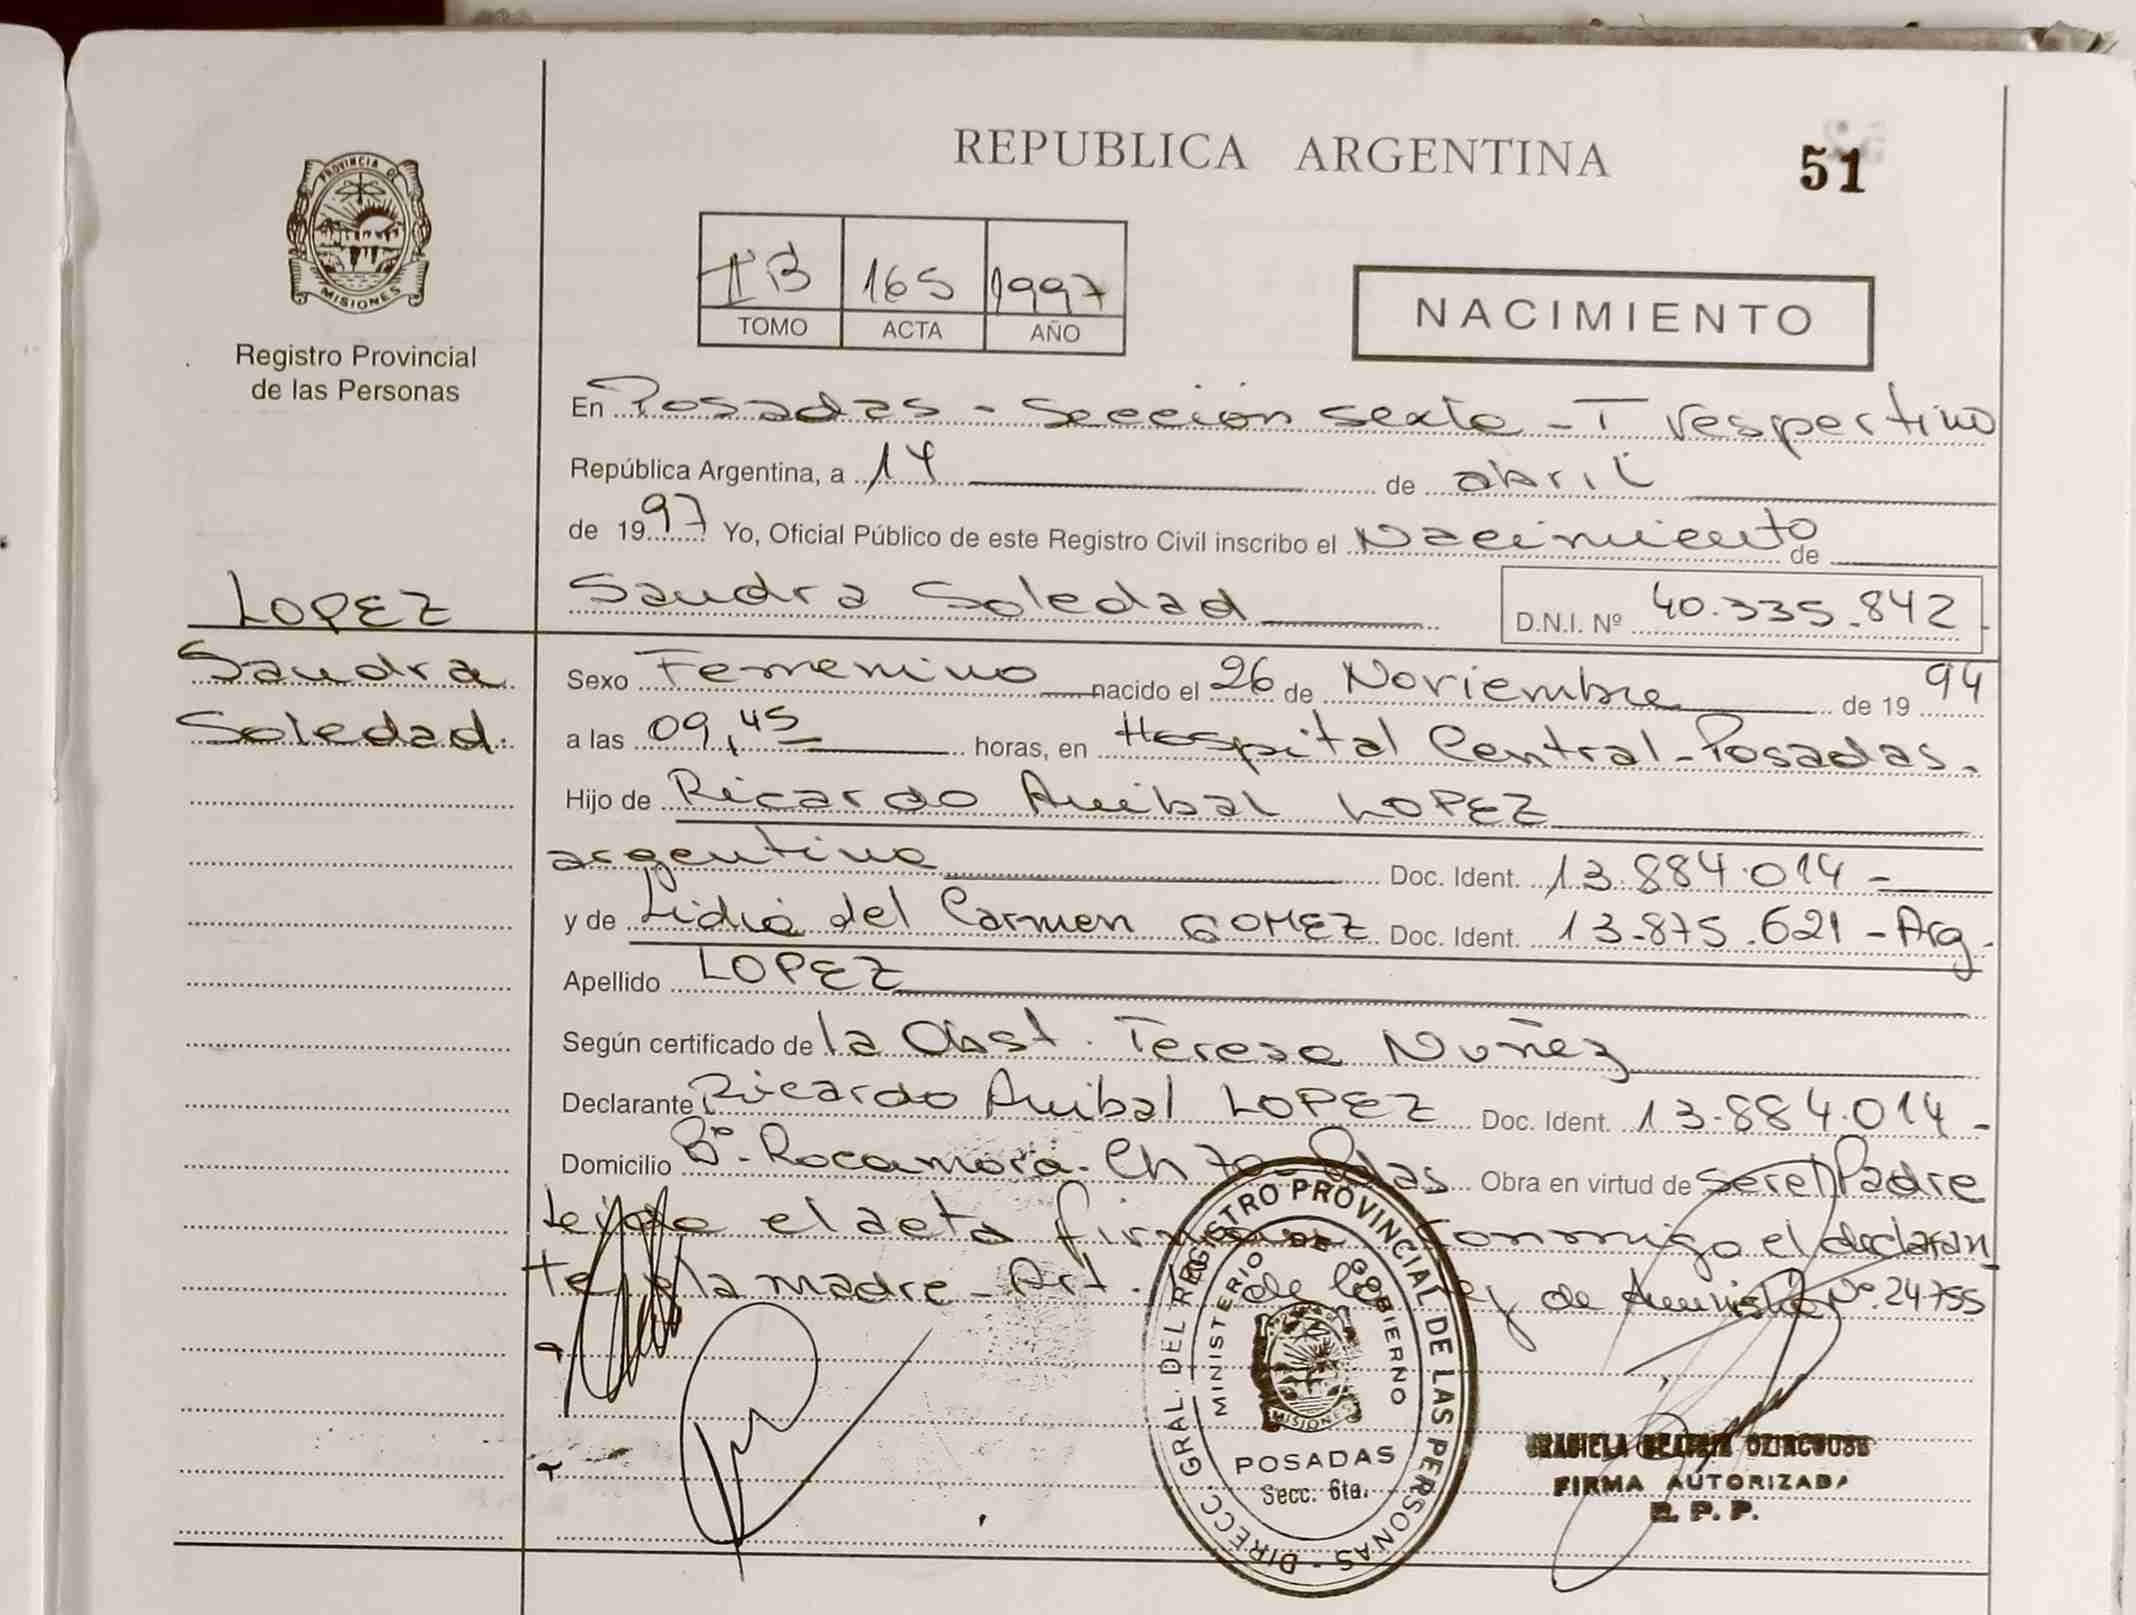 REPUBLICA ARGENTINA
51
PROVINCIA DE
MISIONES
Registro Provincial
de las Personas
IB 165 1997
TOMO ACTA AÑO
NACIMIENTO
En Posadas - Sección sexta - T Vespertino
República Argentina, a 14 de abril
de 1997 Yo, Oficial Público de este Registro Civil inscribo el Nacimiento de
Sandra Soledad D.N.I. Nº 40.335.842
LOPEZ
Sandra
Soledad.
Sexo Femenino nacido el 26 de Noviembre de 19 94
a las 09,45 horas, en Hospital Central - Posadas.
Hijo de Ricardo Anibal LOPEZ
argentino Doc. Ident. 13.884.014 -
y de Lidia del Carmen GOMEZ Doc. Ident. 13.875.621 - Arg.
Apellido LOPEZ
Según certificado de la Obst. Teresa Nuñez
Declarante Ricardo Anibal LOPEZ Doc. Ident. 13.884.014 -
Domicilio Bº. Rocamora. Ch 70 - Pdas Obra en virtud de ser el Padre
Leida el acta conmigo el declaran
te y la madre - Art. de Nº. 24755
DIRECC. GRAL. DEL REGISTRO PROVINCIAL DE LAS PERSONAS -
MINISTERIO DE GOBIERNO
MISIONES
POSADAS
Secc. 6ta.
GRACIELA BEATRIZ
FIRMA AUTORIZADA
R. P. P.